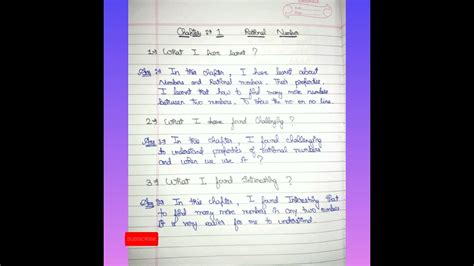 Chapter 1 Rational Number
1→ What I have learnt ?
Ans In this chapter, I have learnt about
Numbers and Rational numbers. Their properties.
I learnt that how to find many more numbers
between two numbers. To show the no on no line.
2→ What I have found Challenging ?
Ans In this chapter, I found challenging
to understand properties of rational numbers
and when we use it ?
3→ What I found Interesting ?
Ans In this chapter, I found Interesting that
to find many more numbers in any two numbers
It is very easier for me to understand.
SUBSCRIBE